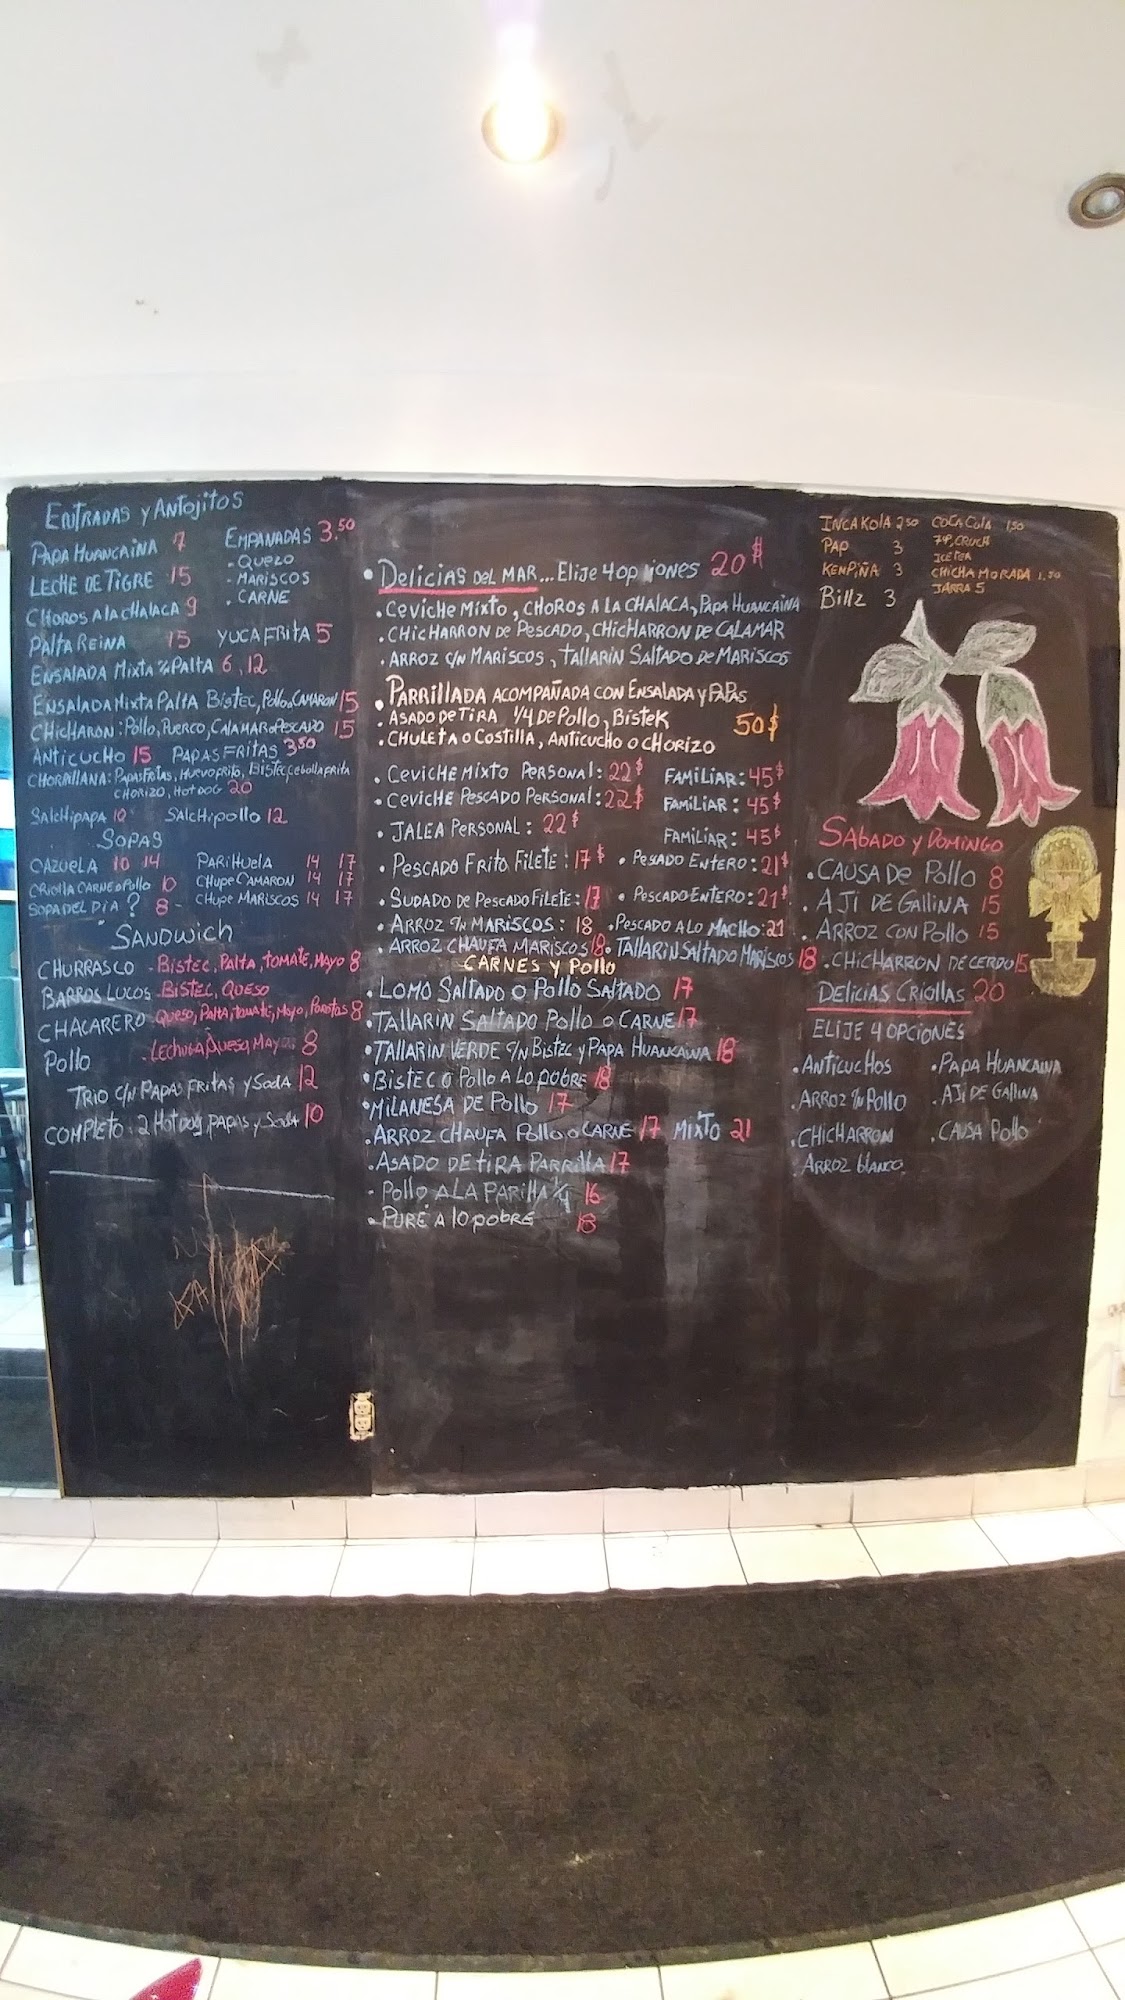 Entradas y Antojitos
Papa Huancaina 7
Leche de Tigre 15
Choros a la Chalaca 9
Empanadas 3.50
- Quezo
- Mariscos
. Carne
Palta Reina 15 Yuca Frita 5
Ensalada Mixta %Palta 6, 12
Ensalada Mixta Palta Bistec, Pollo, Camaron 15
Chicharon: Pollo, Puerco, Calamar o Pescado 15
Anticucho 15 Papas Fritas 3.50
Chorrillana: Papas Fritas, Huevo frito, Bistec, cebolla frita
Chorizo, Hot dog 20
Salchipapa 10 Salchipollo 12
Sopas
Cazuela 10 14 Parihuela 14 17
Criolla Carne o Pollo 10 Chupe Camaron 14 17
Sopa del Dia ? 8 - Chupe Mariscos 14 17
Sandwich
Churrasco - Bistec, Palta, Tomate, Mayo 8
Barros Lucos - Bistec, Queso
Chacarero - Queso, Palta, Tomate, Mayo, Porotos 8
Pollo - Lechuga, Queso, Mayo 8
Trio c/n Papas Fritas y Soda 12
Completo: 2 Hot dog papas y Soda 10
• Delicias del Mar... Elije 4 opciones 20$
. Ceviche Mixto, Choros a la Chalaca, Papa Huancaina
. Chicharron de Pescado, Chicharron de Calamar
. Arroz c/n Mariscos, Tallarin Saltado de Mariscos
• Parrillada acompañada con Ensalada y Papas
. Asado de Tira 1/4 de Pollo, Bistek 50$
. Chuleta o Costilla, Anticucho o Chorizo
. Ceviche Mixto Personal: 22$ Familiar: 45$
. Ceviche Pescado Personal: 22$ Familiar: 45$
. Jalea Personal: 22$ Familiar: 45$
. Pescado Frito Filete: 17$ • Pescado Entero: 21$
. Sudado de Pescado Filete: 17 • Pescado Entero: 21$
. Arroz c/n Mariscos: 18 . Pescado a lo Macho: 21
. Arroz Chaufa Mariscos 18 . Tallarin Saltado Mariscos 18
Carnes y Pollo
. Lomo Saltado o Pollo Saltado 17
• Tallarin Saltado Pollo o Carne 17
• Tallarin Verde c/n Bistec y Papa Huancaina 18
• Bistec o Pollo a Lo pobre 18
• Milanesa de Pollo 17
. Arroz Chaufa Pollo o Carne 17 Mixto 21
. Asado de tira Parrilla 17
- Pollo a la Parilla 1/4 16
• Puré a lo pobre 18
Inca Kola 2.50
Pap 3
Kenpiña 3
Billz 3
Coca Cola 1.50
7up, Cruch
Ice tea
Chicha Morada 1.50
Jarra 5
Sabado y Domingo
. Causa de Pollo 8
. Aji de Gallina 15
. Arroz con Pollo 15
. Chicharron de Cerdo 15
Delicias Criollas 20
Elije 4 opciones
. Anticuchos • Papa Huancaina
. Arroz c/n Pollo . Aji de Gallina
. Chicharron . Causa Pollo
. Arroz blanco